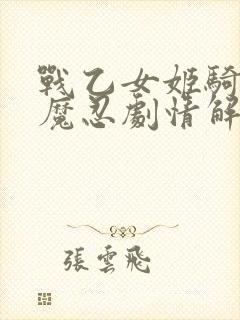 戰乙女姬騎
魔忍劇情解
張雲飛